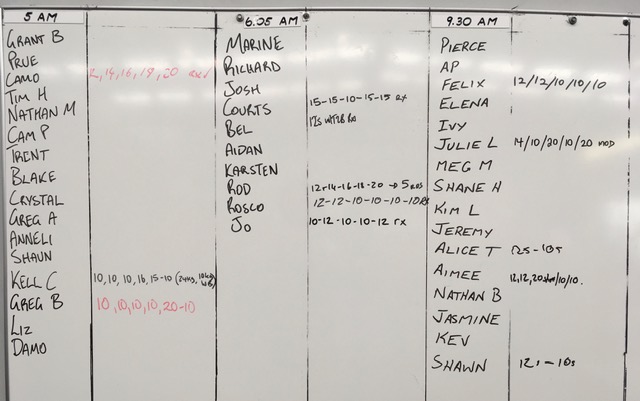 5 AM
GRANT B
PRUE
CAMO 14, 16, 19, 20
TIM H
NATHAN M
CAM P
TRENT
BLAKE
CRYSTAL
GREG A
ANNELI
SHAUN
KELL C 10, 10, 10, 16, 15-10
GREG B 10, 10, 10, 10, 20-10
LIZ
DAMO
6.05 AM
MARINE
RICHARD
JOSH
COURTS 15-15-10-15-15 RX
BEL
AIDAN
KARSTEN
ROD 12-14-16-18-20 → 5
ROSCO 12-12-10-10-10-10
JO 10-12-10-10-12 rx
9.30 AM
PIERCE
AP
FELIX 12/12/10/10/10
ELENA
IVY
JULIE L 14/10/20/10/20 MOD
MEG M
SHANE H
KIM L
JEREMY
ALICE T 12s-10s
AIMEE 12,12,20 10/10.
NATHAN B
JASMINE
KEV
SHAWN 12s-10s